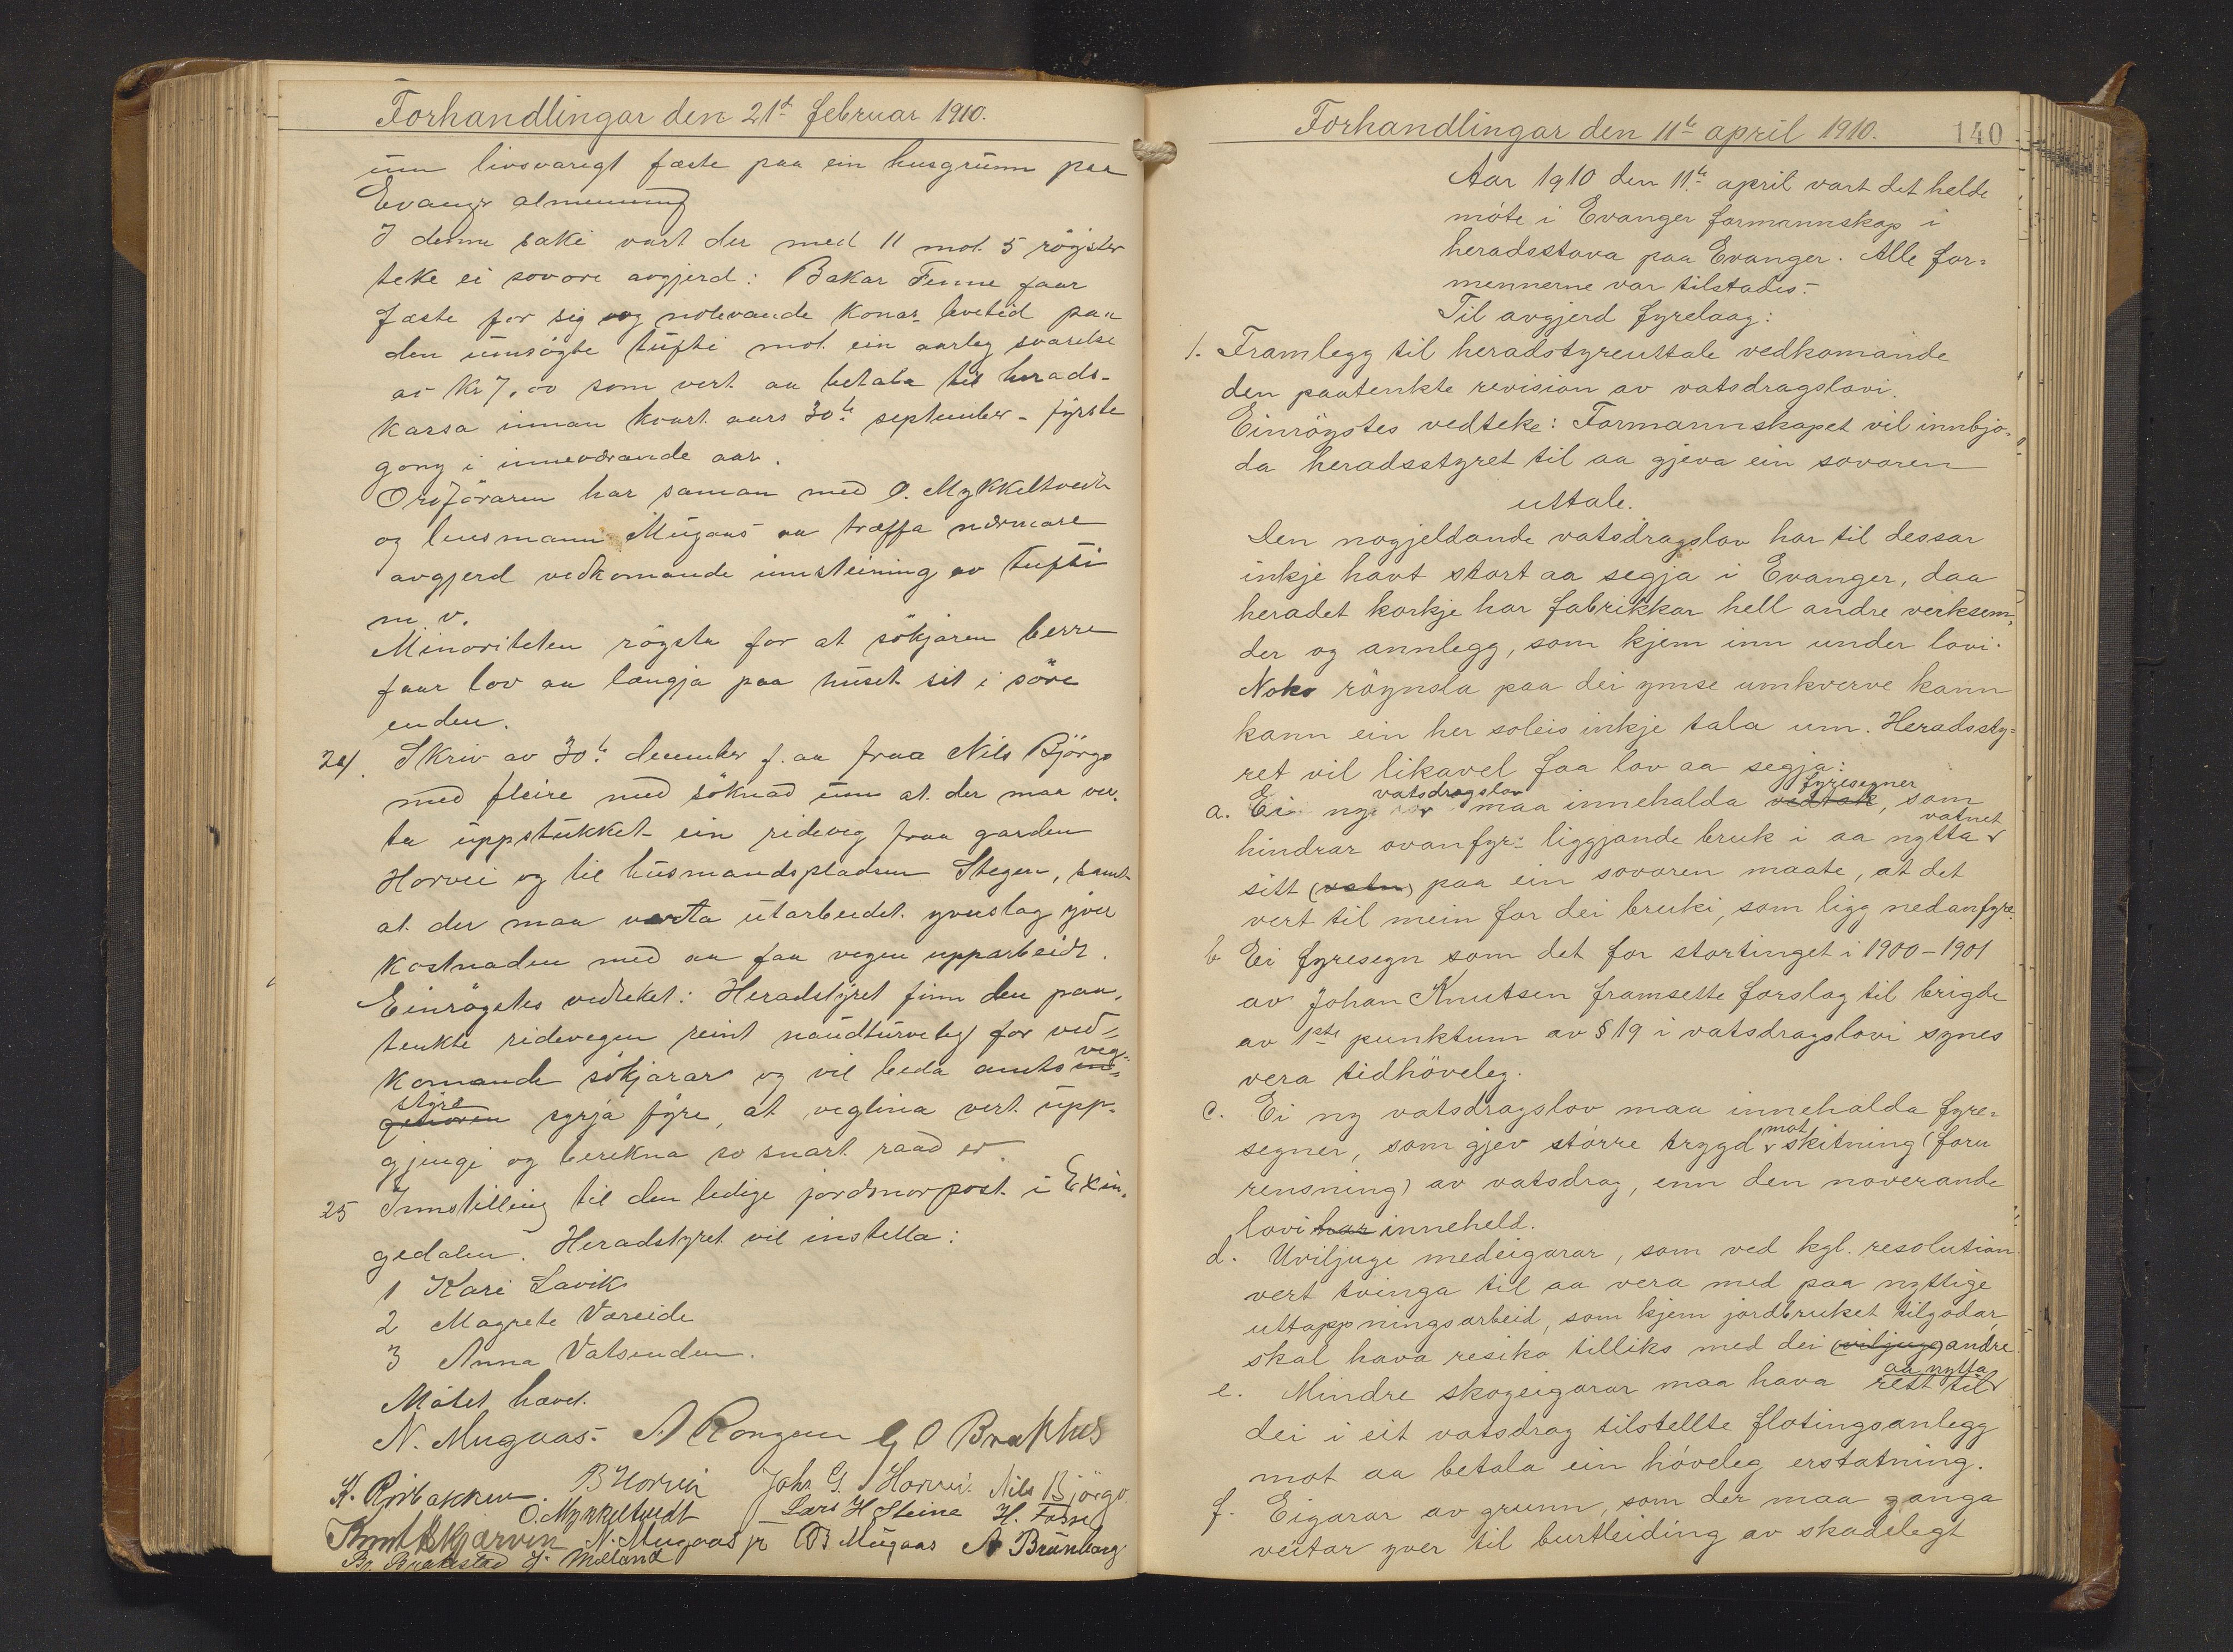 Forhandlingar den 21de februar 1910.
um livsvarigt fæste paa ein husgrunn paa
Evanger almenning
I denne saki vart der med 11 mot 5 røyster
teke ei sovore avgjerd: Bakar Fenne faar
fæste for sig og nolevande konas levetid paa
den umsøgte tufti mot ein aarleg svarelse
av Kr 7,00 som vert aa betala til herads-
kassa innan kvart aars 30te september - fyrste
gong i inneværande aar.
Ordføraren har saman med O. Mykkeltvedt
og lensmann Mugaas aa træffa nærmare
avgjerd vedkomande innsteining av tufti
m. v.
Minoriteten røysta for at søkjaren berre
faar lov aa længja paa huset sit i søre
enden.
24. Skriv av 30te december f. aa fraa Nils Bjørgo
med fleire med søknad um at der maa ver-
ta uppstukket ein rideveg fraa garden
Horvei og til husmandspladsen Stegen, samt
at der maa verta utarbeidet yverslag yver
kostnaden med aa faa vegen upparbeidt.
Einrøystes vedteket: Heradstyret finn den paa-
tenkte ridevegen reint naudturveleg for ved-
komande søkjarar og vil beda amts in- veg-
geniøren styre syrja fyre, at veglina vert upp-
gjengi og berekna so snart raad er.
25 Innstilling til den ledige jordmorpost i Exin-
gedalen. Heradstyret vil instella:
1 Kari Lavik
2 Magrete Vareide
3 Anna Vatsenden.
Møtet hævd.
N. Mugaas. A Rongen G O Brakhus
K. Rjrbakken B Horvei Johs. G. Horvei. Nils Bjørgo.
O. Mykkeltvedt Lars H Steine H. Fosse
Knut Skjerven N. Mugaas jr B Mugaas A Brunborg
Br. Brakestad J. Mæland
Forhandlingar den 11te april 1910. 140
Aar 1910 den 11te april vart det helde
møte i Evanger formannskap i
heradsstova paa Evanger. Alle for-
mennerne var tilstades.-
Til avgjerd fyrelaag:
1. Framlegg til heradstyreuttale vedkomande
den paatenkte revision av vatsdragslovi.
Einrøystes vedteke: Formannskapet vil innbjo-
da heradsstyret til aa gjeva ein sovoren
uttale.
Den nogjeldande vatsdragslov har til dessar
inkje havt stort aa segja i Evanger, daa
heradet korkje har fabrikkar hell andre verksem-
der og annlegg, som kjem inn under lovi.
Noko røynsla paa dei ymse umkverve kann
kann ein her soleis inkje tala um. Heradssty-
ret vil likavel faa lov aa segja:
a. Ei ny vatsdragslov maa innehalda vedtak fyresegner, som
hindrar ovanfyr- liggjande bruk i aa nytta vatnet
sitt (vatn) paa ein sovoren maate, at det
vert til mein for dei bruki, som ligg nedanfyre.
b Ei fyresegn som det for stortinget i 1900-1901
av Johan Knutsen framsette forslag til brigde
av 1ste punktum av § 19 i vatsdragslovi synes
vera tidhøveleg.
c. Ei ny vatsdragslov maa innehalda fyre-
segner, som gjev større trygd mot skitning (foru
rensning) av vatsdrag, enn den noverande
lovi har inneheld.
d. Uviljuge medeigarar, som ved kgl. resolution
vert tvinga til aa vera med paa nyttige
uttappningsarbeid, som kjem jordbruket tilgodar,
skal hava resiko tilliks med dei (viljuge) andre.
e. Mindre skogeigarar maa hava rett til aa nytta
dei i eit vatsdrag tilstellte flotingsanlegg
mot aa betala ein høveleg erstatning.
f. Eigarar av grunn, som der maa ganga
veitar yver til burtleiding av skadelegt